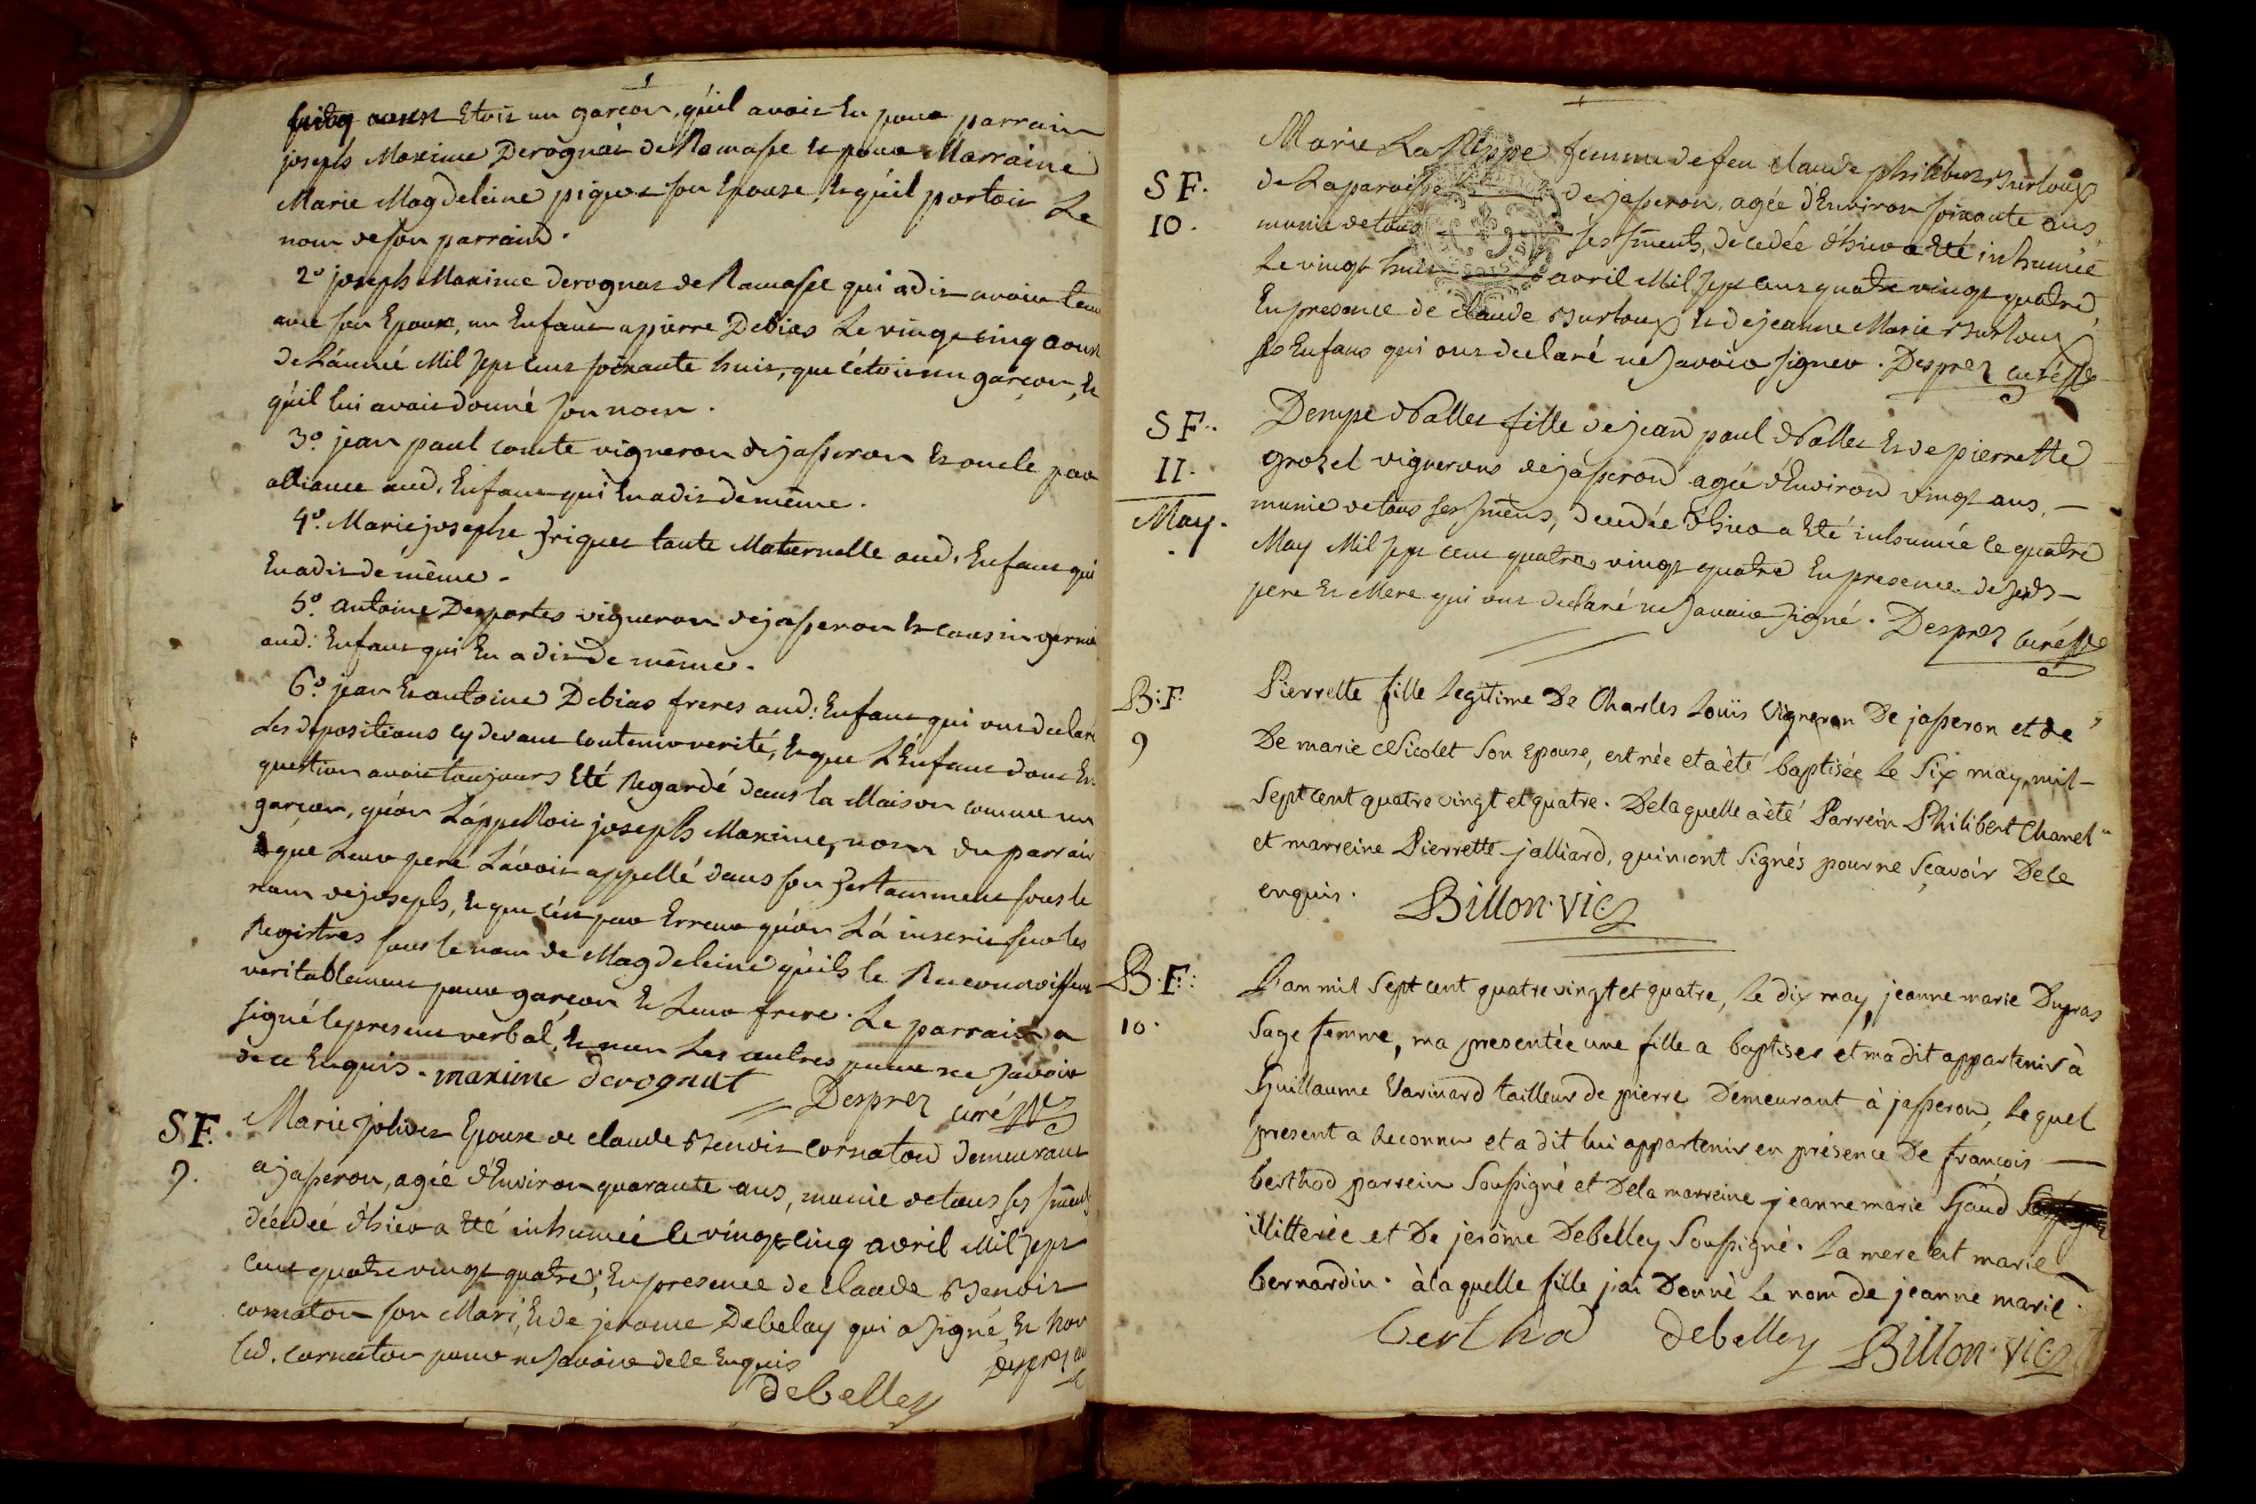 Etoit un garçon, qu'il avoit Eu pour parrain
joseph Maxime Derognat de Ramasse Et pour Marraine
Marie Magdeleine piquet son Epouse Et qu'il portoit Le
nom de son parrain.
2° joseph Maxime derognat de Ramasse qui a dit avoir tenu
avec son Epouse, un Enfant a pierre Debias Le vingt cinq aoust
de L'année Mil sept cent soixante huit, que c'étoit un garçon, Et
qu'il lui avoit donné son nom.
3°. jean paul comte vigneron de jasseron Et oncle par
alliance aud. Enfant qui En a dit de même.
4°. Marie josephe friquet tante Maternelle aud. Enfant qui
En a dit de même.
5°. antoine Desportes vigneron de jasseron Et cousin germain
aud: Enfant qui En a dit De même.
6°. jean Et antoine Debias freres aud: Enfant qui ont declaré
Les depositions cy devant contenir verité, Et que L'Enfant dont En
question avoit toujours Eté Regardé dans la Maison comme un
garçon, qu'on L'appelloit joseph Maxime, nom du parrain
que Leur pere L'avoit appellé dans son Testamment sous le
nom de joseph, Et que c'est par Erreur qu'on L'a inscrit sur les
Registres sous le nom de Magdeleine qu'ils le Reconnoissent
veritablement pour garçon Et Leur frere. Le parrain a
signé le present verbal, Et non Les autres pour ne savoir
de ce Enquis. maxime derognat
Desprez curé
S F. Marie jolivet Epouse de claude Benoit cornaton demeurant
9. a jasseron, agée d'Environ quarante ans, munie de tous ses sments
décedée d'hier a Eté inhumée le vingt cinq avril Mil sept
cent quatre vingt quatre; En presence de claude Benoit
cornaton son Mari, Et de jerome Debelay qui a signé, Et non
led. cornaton pour ne savoir de ce Enquis Desprez
debelley
Marie La femme de feu claude philibert Burtoux
S F. de La paroisse de jasseron, agée d'Environ soixante ans,
10. munie de tous ses sments, decedée d'hier a Eté inhumée
Le vingt huit avril Mil sept cent quatre vingt quatre,
En presence de claude Burtoux Et de jeanne Marie Burtoux
ses Enfans qui ont declaré ne savoir signer. Desprez curé
S F. Denyse Vallet fille de jean paul Vallet Et de pierrette
II. grozel vignerons de jasseron agée d'Environ vingt ans,
May. munie de tous ses sments, decedée d'hier a Eté inhumée le quatre
May Mil sept cent quatre vingt quatre En presence de sesds
pere Et Mere qui ont declaré ne savoir signé. Desprez curé
B: F: Pierrette fille Legitime De Charles Louis Vigneron De jasseron et de
9 De marie Nicolet Son Epouse, est née et a èté baptisée Le Six may, mil
Sept cent quatre vingt et quatre. De laquelle a èté Parrein Philibert Chanel
et marreine Pierrette jalliard, qui n'ont Signés pour ne Sçavoir De ce
enquis. Billon. vic
B. F: L'an mil Sept cent quatre vingt et quatre, Le dix may, jeanne marie Dupras
10. Sage femme, ma presentée une fille a baptiser et ma dit appartenir à
Guillaume Varinard tailleur de pierre Demeurant à jasseron, Lequel
present a Reconnu et a dit lui appartenir en présence De francois
berthod parrein Soussigné et De la marreine jeanne marie Gaud
illiterée et De jerôme Debelley Soussigné. La mere est marie
bernardin. à laquelle fille j'ai Donné Le nom de jeanne marie.
berthod debelley Billon. vic